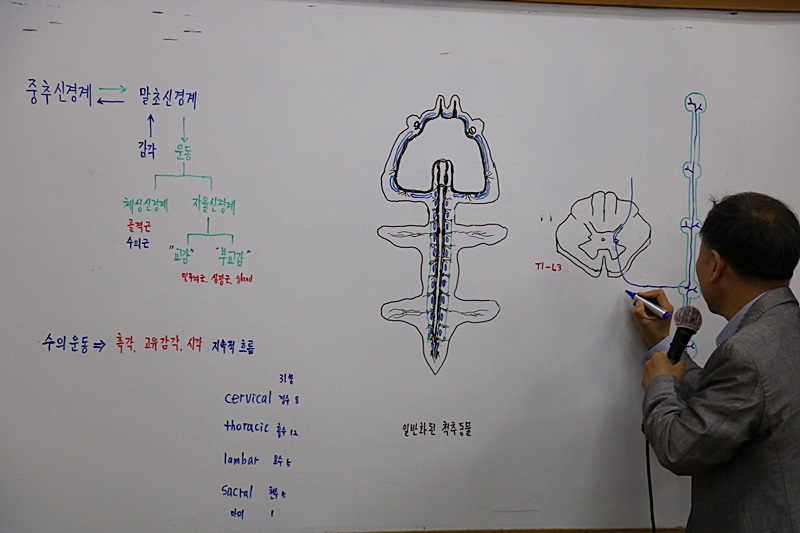 중추신경계 말초신경계
감각 운동
체성신경계 자율신경계
골격근
수의근
"교감" "부교감"
민무늬근, 심장근, gland
수의 운동 ⇒ 촉각, 고유감각, 시각 지속적 흐름
31쌍
cervical 경수 8
thoracic 흉수 12
lambar 요수 5
sacral 천수 5
미수 1
일반화된 척추동물
T1-L3